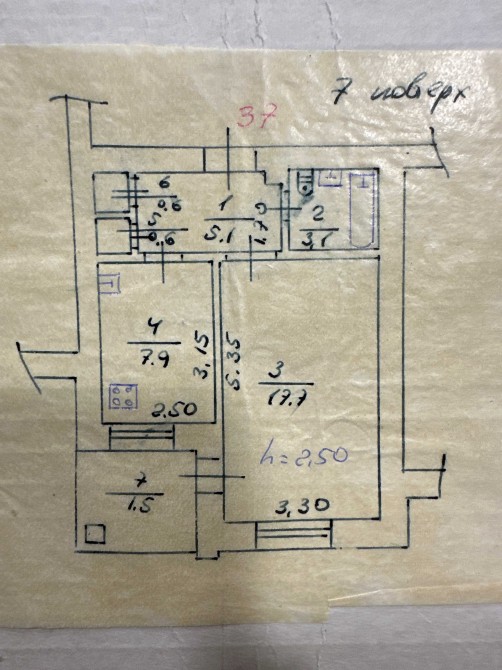 7 поверх
37
6
0.6
5
0.6
1
5.1
1.70
2
3.1
4
7.9
3.15
2.50
5.35
3
17.7
h=2,50
3,30
7
1.5